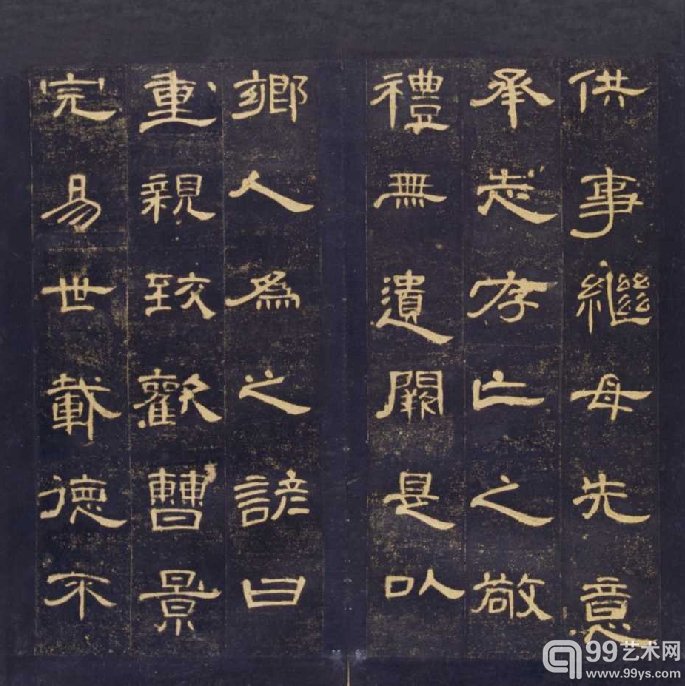 供事繼母先意
承志存亡之敬
禮無遺闕是以
鄉人為之諺曰
重親致歡曹景
完易世載德不
99艺术网
www.99ys.com